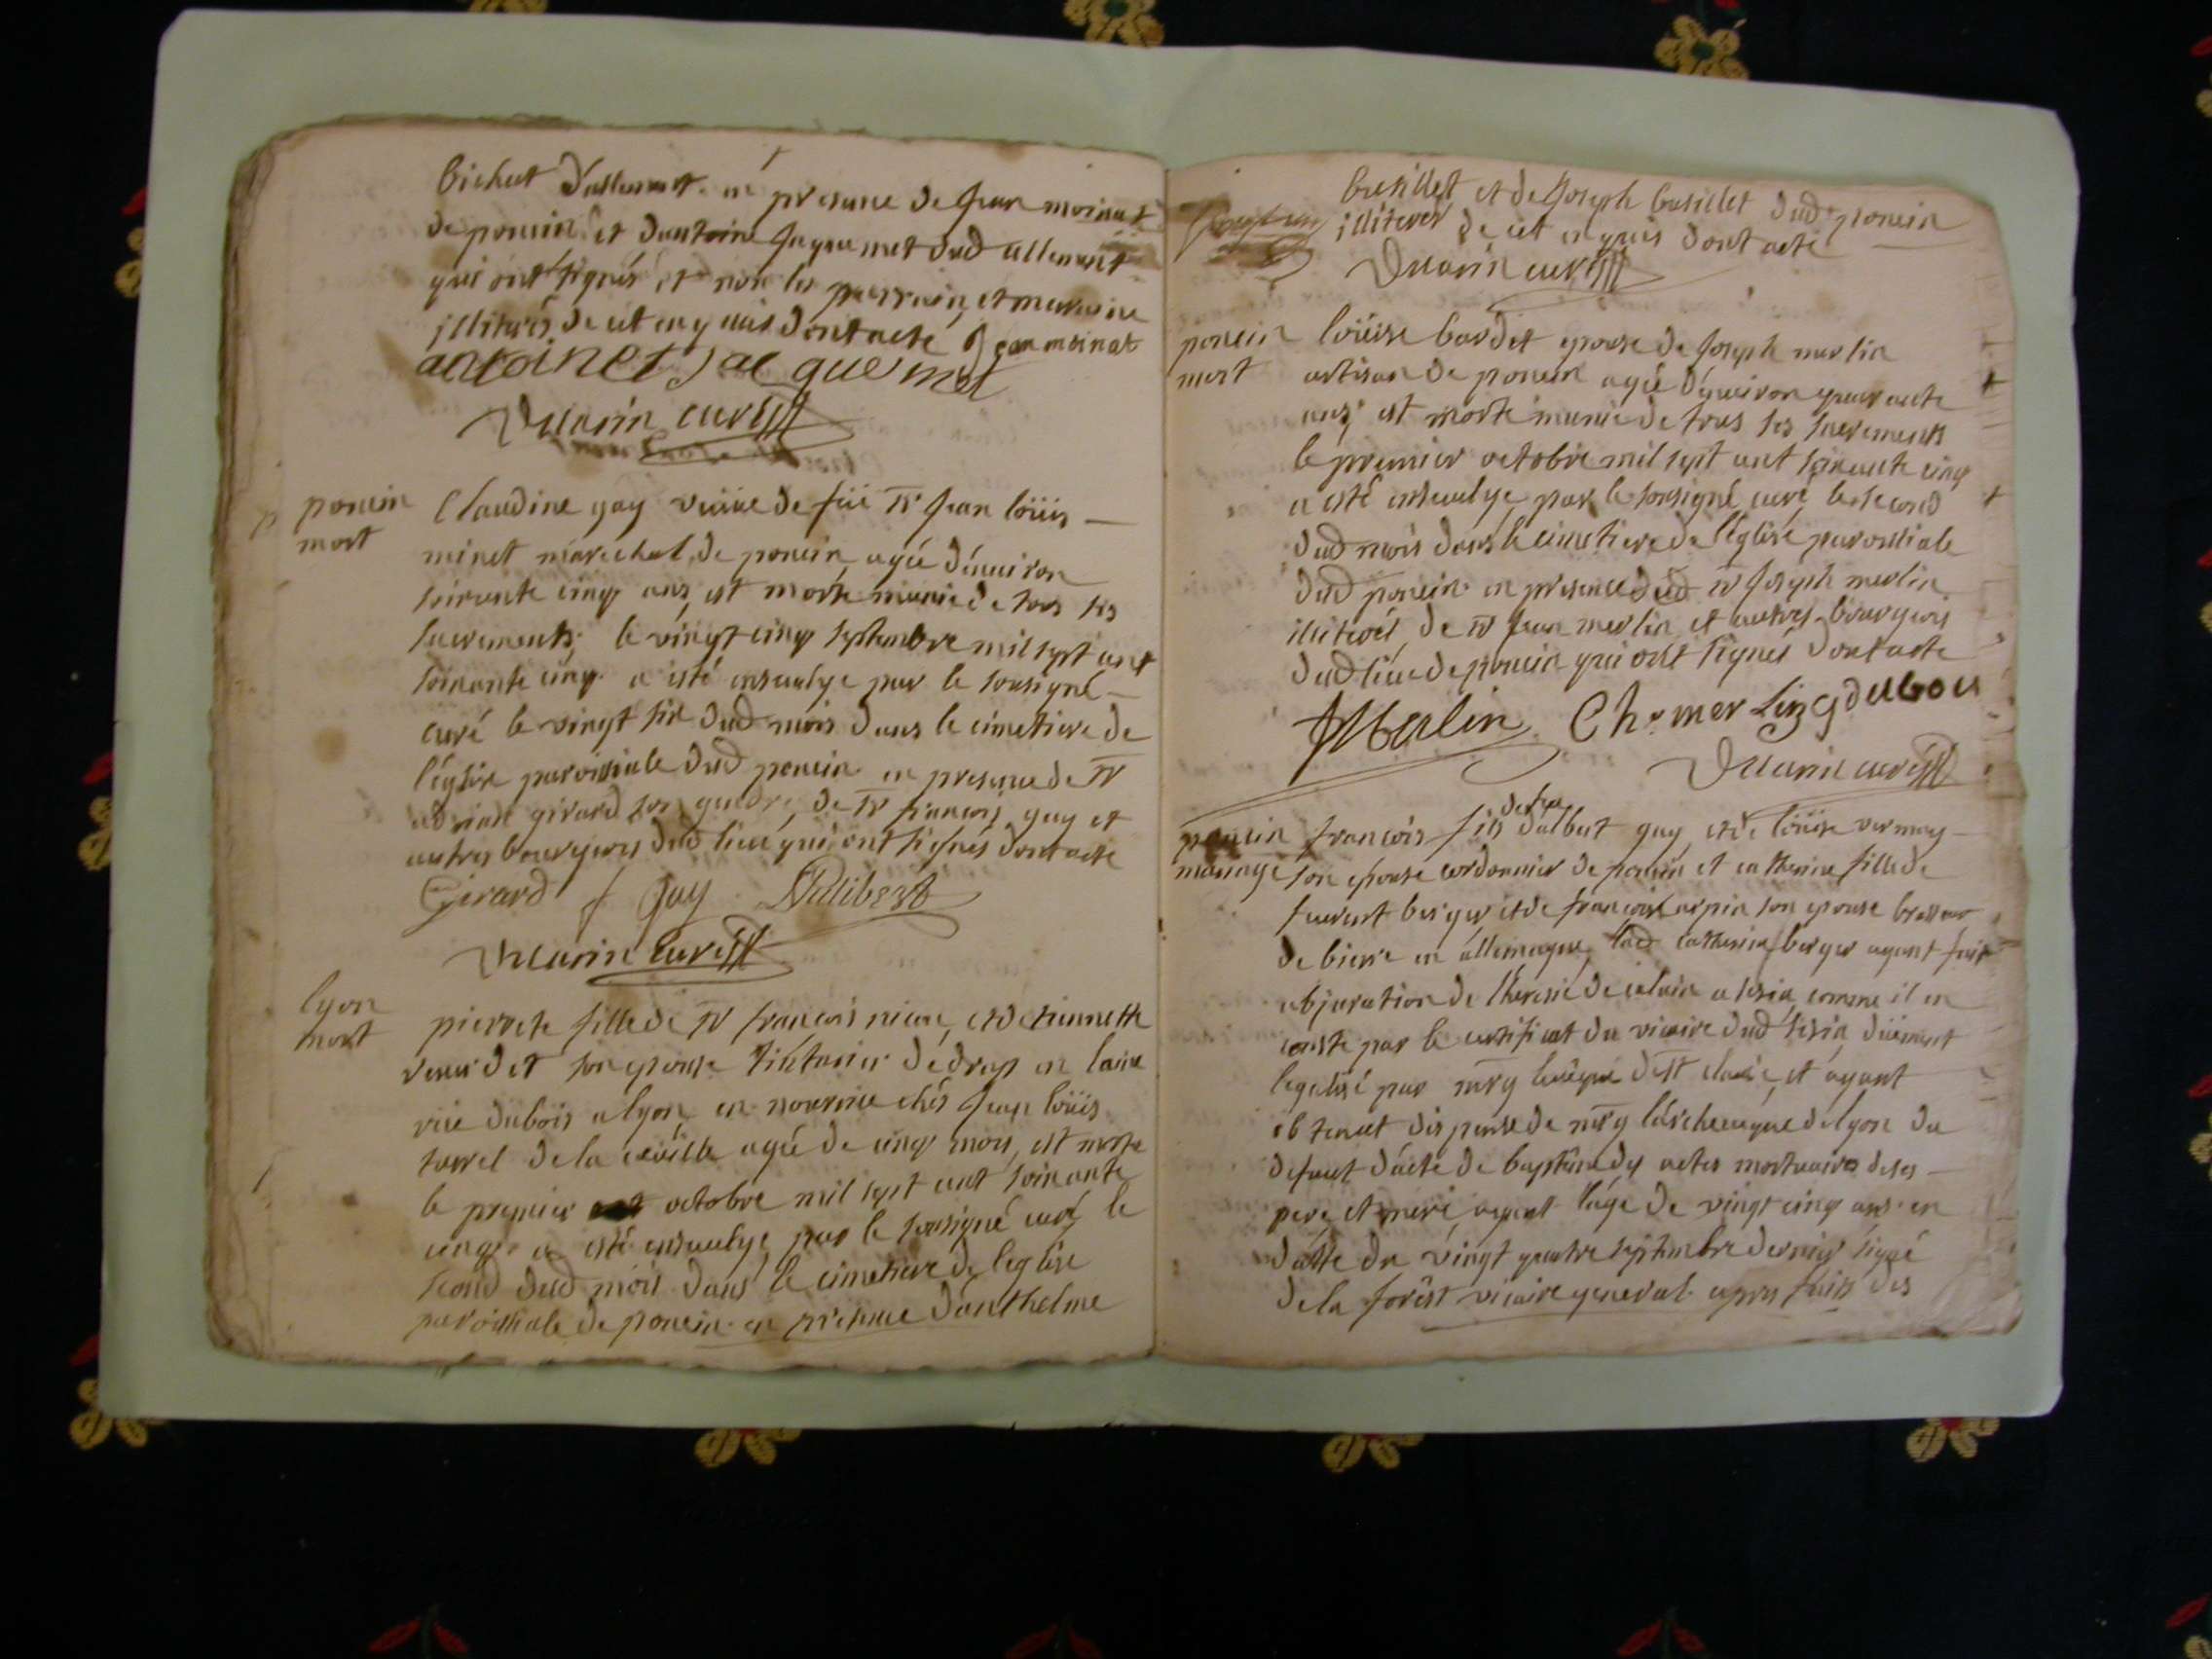 bichat d'allement. en presence de Jean moinat
de poncin et d'antoine Jaquemet dud allement
qui ont signés et non les parrain et marraine
illiterés de cet enquis dont acte Jean moinat
antoinet Jacquemet
Duarin curé
poncin
mort
Claudine gay veüve de feü Sr Jean loüis
minet maréchal de poncin agée d'énviron
soixante cinq ans est morte munie de tous ses
sacrements le vingt cinq septembre mil sept cent
soixante cinq a esté ensevelye par le sousigné
curé le vingt six dud mois dans le cimetiere de
l'église paroissiale dud poncin en presence de Sr
girard son gendre, de Sr francois gay et
autres bourgeois dud lieu qui ont signés dont acte
Girard f Gay Philibert
Duarin curé
lyon
mort
pierrete fille de Sr francois et de
son epouse de drap en laine
rüe dubois a lyon en nourrice chés Jean loüis
de la agée de cinq mois, est morte
le premier octobre mil sept cent soixante
cinq a esté ensevelye par le sousigné curé le
second dud mois dans le cimetiere de l'eglise
paroissiale de poncin en presence d'anthelme
busillet et de Joseph busillet dud poncin
illiterés de cet enquis dont acte
Duarin curé
poncin
mort
loüise bardet epouse de Joseph merlin
artisan de poncin agée d'énviron quarante
ans est morte munie de tous ses sacrements
le premier octobre mil sept cent soixante cinq
a esté ensevelye par le sousigné curé le second
dud mois dans le cimetiere de l'église paroissiale
dud poncin en presence dud Sr Joseph merlin
illiteré, de Sr Jean merlin et autres bourgeois
dud lieu de poncin qui ont signés dont acte
JMerlin Ch. merlin g dubou
Duarin curé
poncin
mariage
francois fils de feu d'albert guy et de loüise
son epouse cordonnier de poncin et catherine fille de
berger et de son epouse brasseur
de bierre en allemagne, lad catherine berger ayant fait
abjuration de l'heresie de calvin comme il en
conste par le certificat du vicaire dud düement
legalisé par msrg leveque de St claude, et ayant
obtenut dispense de msrg l'archeveque de lyon du
defaut d'acte de baptême des actes mortuaires de ses
pere et mere ayant l'age de vingt cinq ans en
datte du vingt quatre septembre dernier signé
de la forêst vicaire general apres trois des